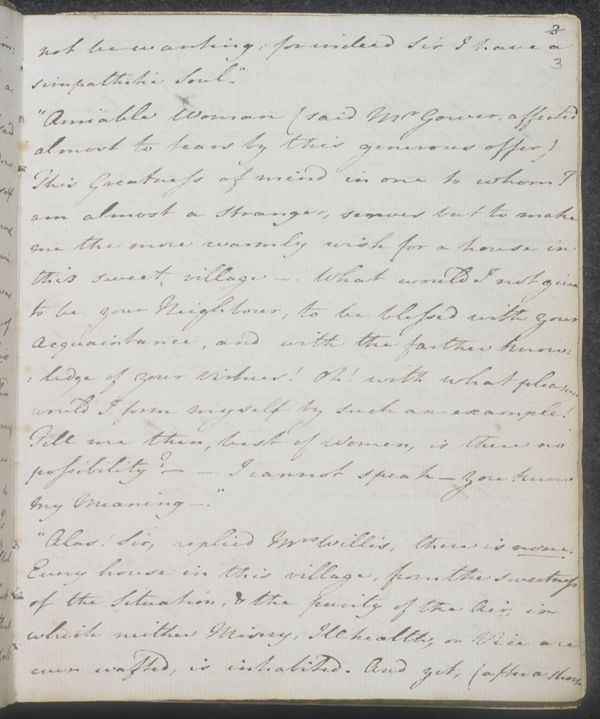 3
3
not be wanting; for indeed Sir I have a
simpathetic Soul."
"Amiable Woman (said Mr Gower, affected
almost to tears by this generous offer.)
This Greatness of mind in one to whom I
am almost a Stranger, serves but to make
me the more warmly wish for a house in
this sweet village —. What would I not give
to be your Neighbour, to be blessed with your
Acquaintance, and with the farther know:
:ledge of your virtues! Oh! with what pleasure
would I form myself by such an example!
Tell me then, best of Women, is there no
possibility? — — I cannot speak — you know
my Meaning —."
"Alas! Sir, replied Mrs Willis, there is none.
Every house in this village, from the sweetness
of the Situation, & the purity of the Air, in
which neither Misery, Illhealth, or Vice are
ever wafted, is inhabited. And yet, (after a short